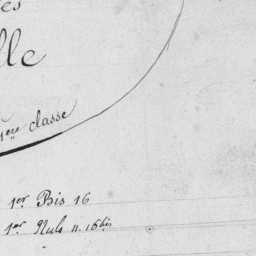 es
lle
1ere classe
1er Bis 16
1er Nul n. 16bis